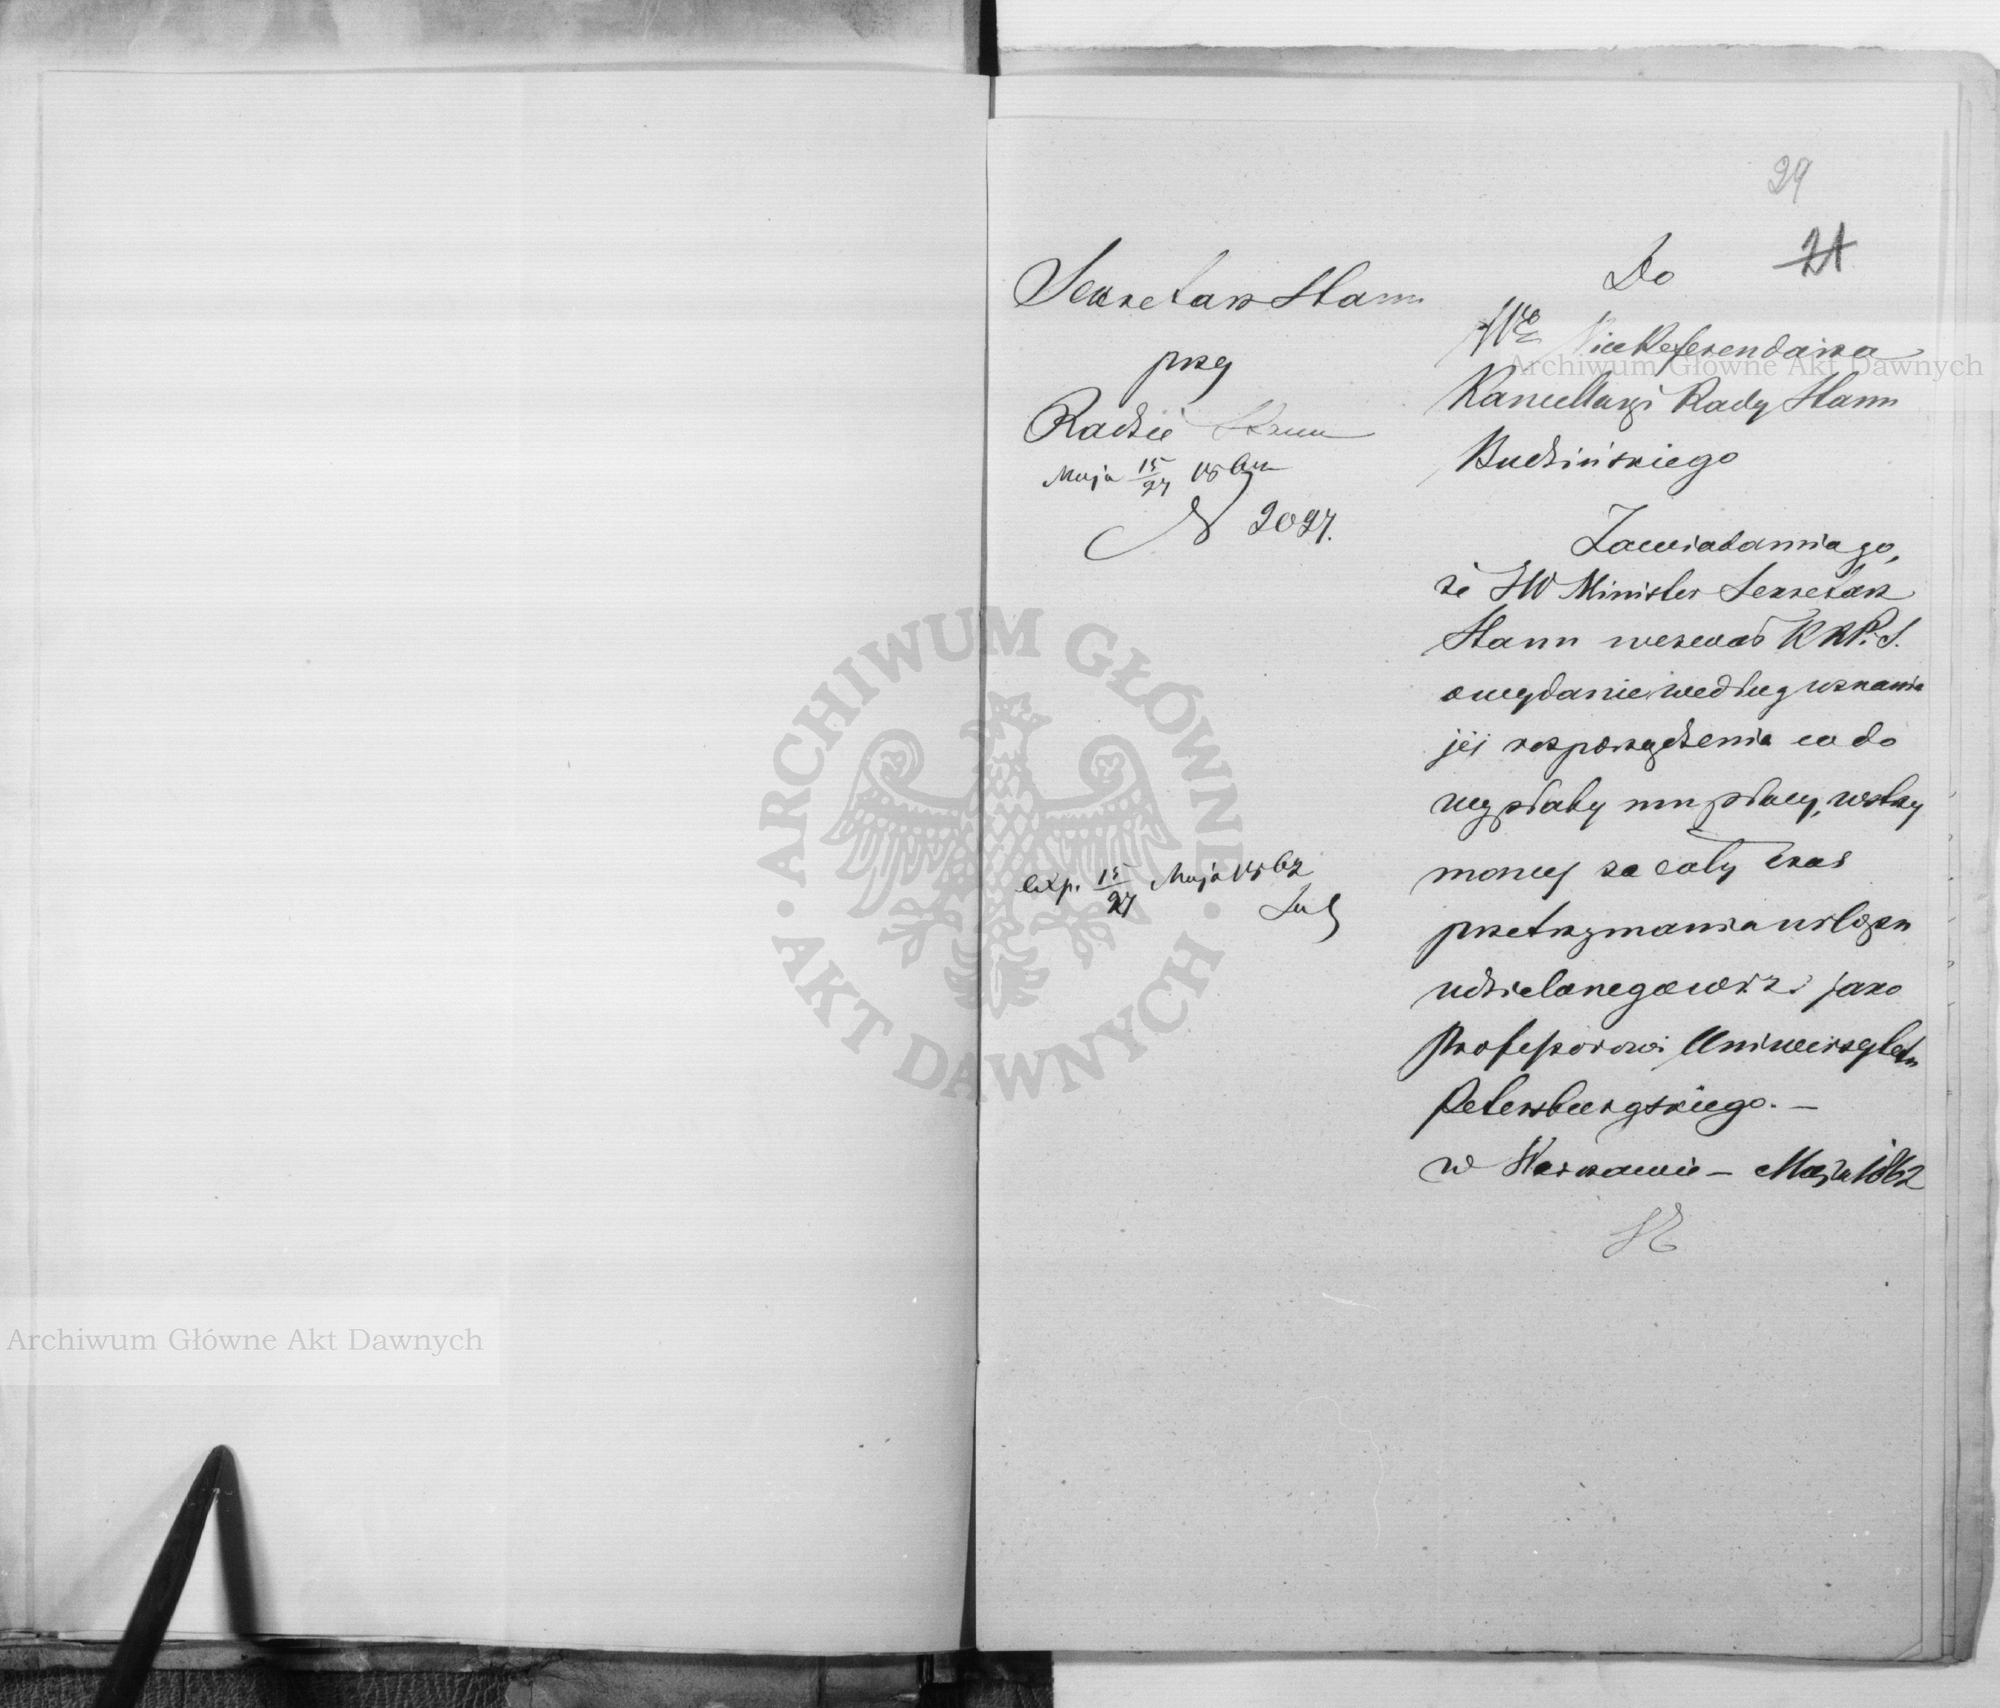 29
21
Sekretarz Stanu
przy
Radzie Stanu
Maja 15/27 1862
N 2027.
exp. 15/27 Maja 1862
Do
Wgo Vice Referendarza
Kancellaryi Rady Stanu
Budzińskiego
Zawiadamia go,
że JW Minister Sekretarz
Stanu wezwał K R P. i S.
o wydanie według uznania
jéj rozporządzenia co do
wypłaty mu płacy, wstrzy
manej za cały czas
przetrzymania urlopu
udzielonego jako
Professorowi Uniwersytetu
Petersburgskiego. –
w Warszawie – Maja 1862
ARCHIWUM GŁÓWNE
AKT DAWNYCH
Archiwum Główne Akt Dawnych
Archiwum Główne Akt Dawnych